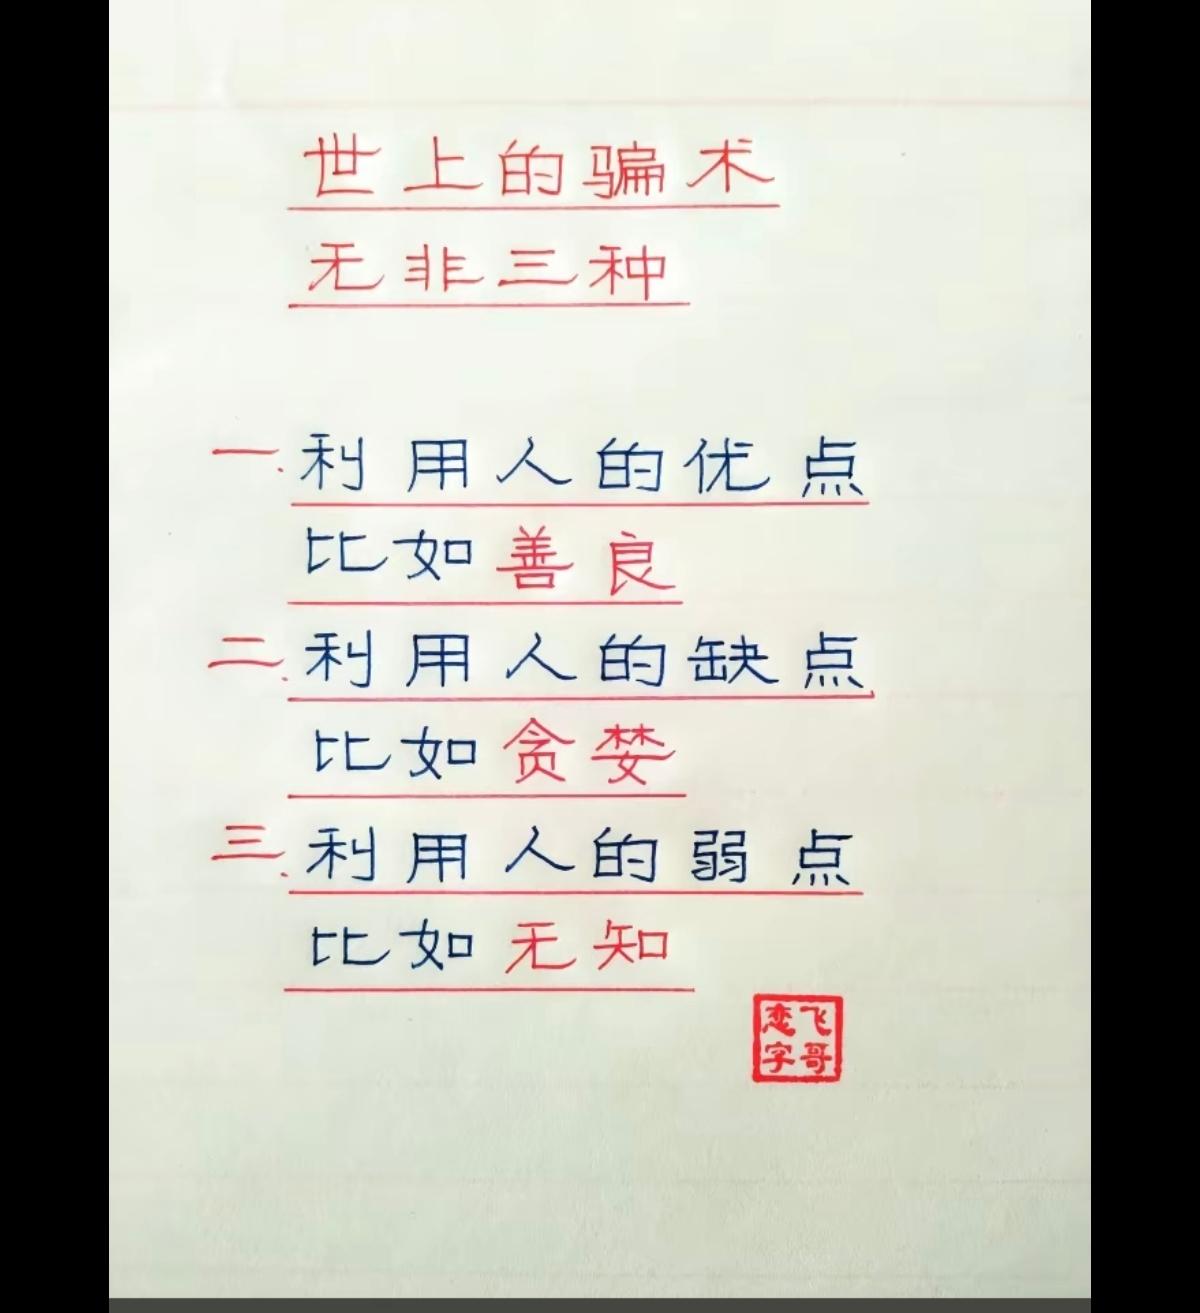 世上的骗术
无非三种
一.利用人的优点
比如善良
二.利用人的缺点
比如贪婪
三.利用人的弱点
比如无知
飞哥
恋字